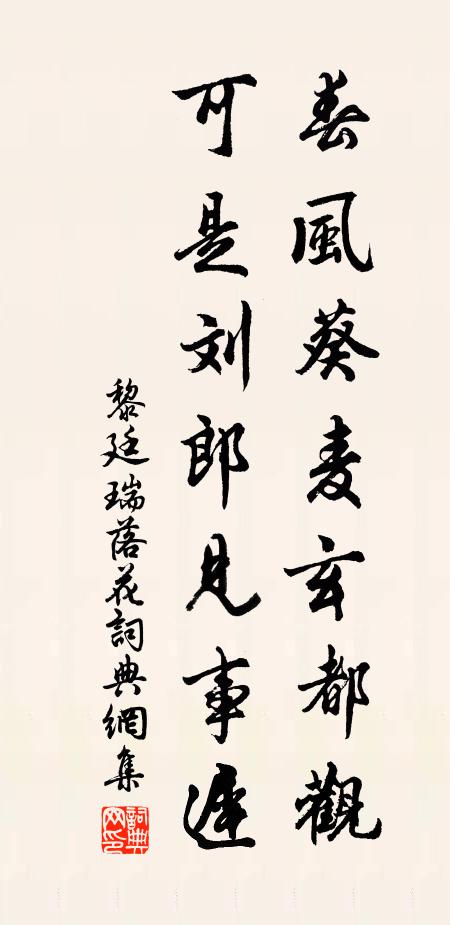 春風葵麦玄都觀
可是刘郎見事遲
黎廷瑞落花詞典網集
詞典网印